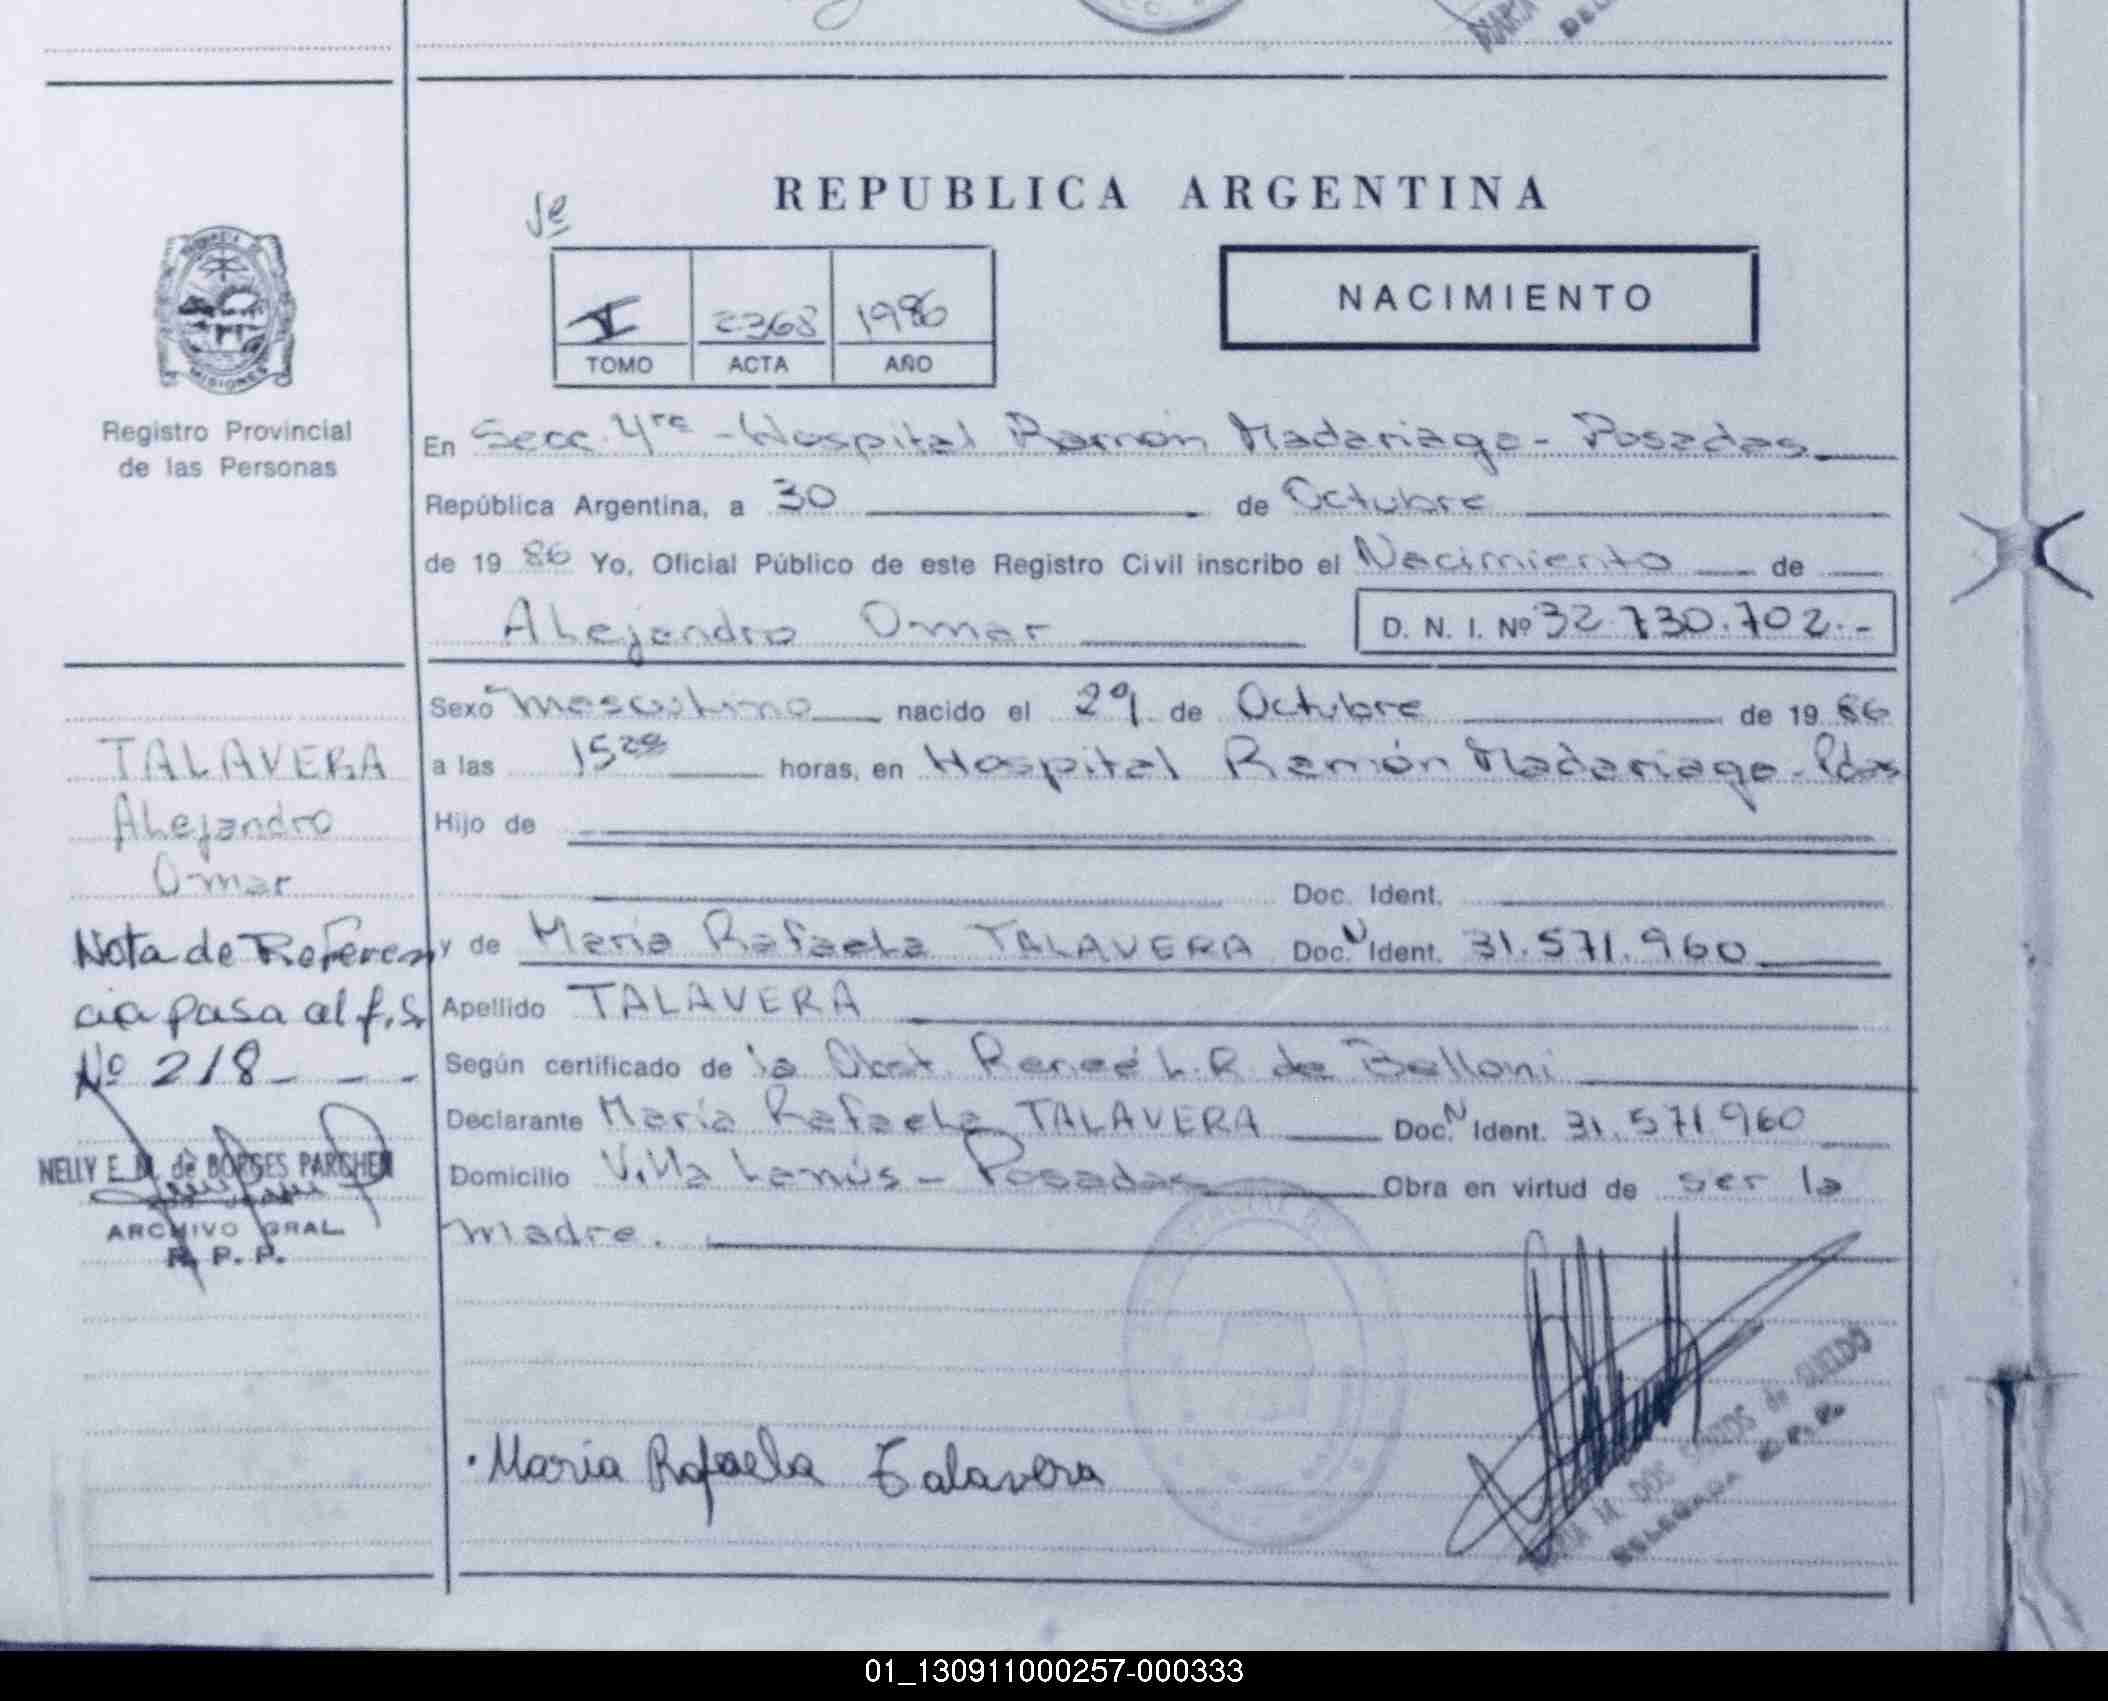 REPUBLICA ARGENTINA
NACIMIENTO
2368 1986
TOMO ACTA AÑO
PROVINCIA DE
MISIONES
Registro Provincial
de las Personas
En Secc. 4ta - Hospital Ramón Madariaga - Posadas
República Argentina, a 30 de Octubre
de 19 86 Yo, Oficial Público de este Registro Civil inscribo el Nacimiento de
Alejandro Omar D. N. I. Nº 32.730.702.-
Sexo Masculino nacido el 29 de Octubre de 19 86
a las 15 horas, en Hospital Ramón Madariaga - Pdas
Hijo de
Doc. Ident.
y de María Rafaela TALAVERA Doc. N Ident. 31.571.960
Apellido TALAVERA
Según certificado de la Obst. Reneé L.R. de Belloni
Declarante María Rafaela TALAVERA Doc. N Ident. 31.571.960
Domicilio Villa Lanús - Posadas Obra en virtud de ser la
madre.
TALAVERA
Alejandro
Omar
Nota de Referen
cia pasa al f.S.
Nº 218 - - -
NELLY E. M. de BORGES PARCHEN
ARCHIVO GRAL.
R. P. P.
María Rafaela Talavera
DOS SANTOS de
DELEGADA R.P.P.
01_130911000257-000333